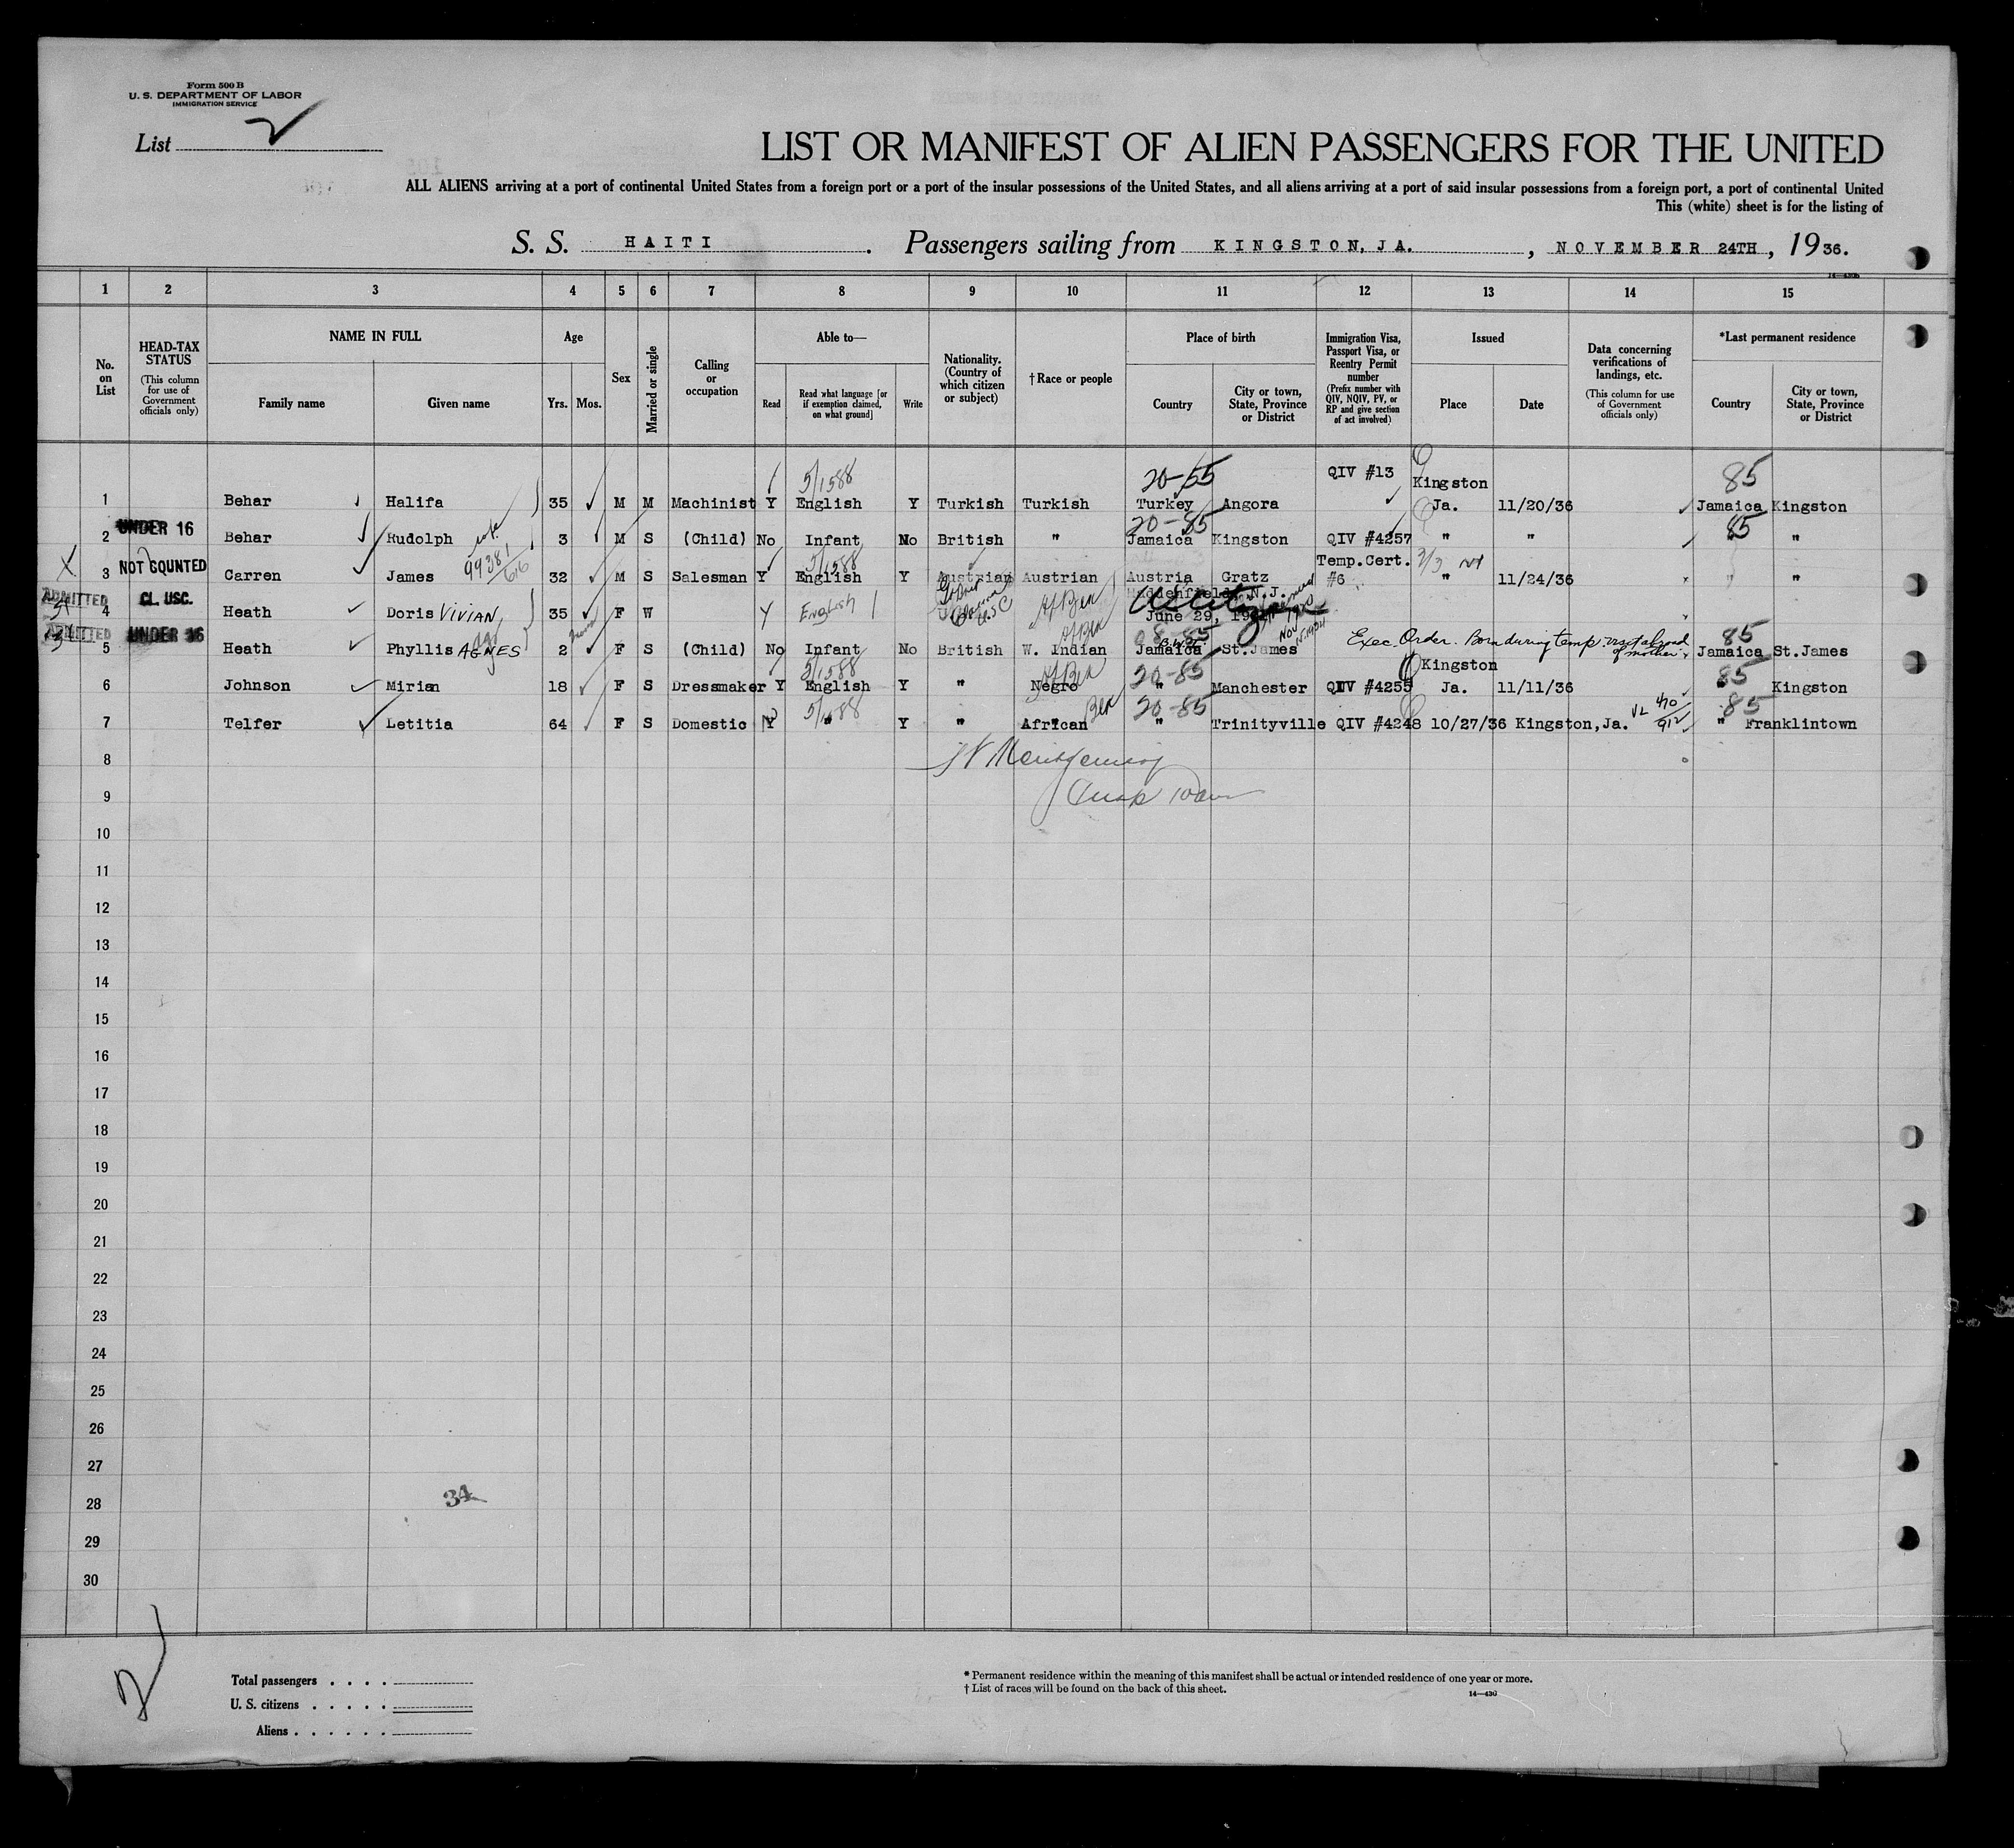 Form 500 B
U. S. DEPARTMENT OF LABOR
IMMIGRATION SERVICE
List 2
LIST OR MANIFEST OF ALIEN PASSENGERS FOR THE UNITED
ALL ALIENS arriving at a port of continental United States from a foreign port or a port of the insular possessions of the United States, and all aliens arriving at a port of said insular possessions from a foreign port, a port of continental United
This (white) sheet is for the listing of
S. S. HAITI . Passengers sailing from KINGSTON, JA. , NOVEMBER 24TH , 19 36.
1 2 3 4 5 6 7 8 9 10 11 12 13 14 15
No. on List
HEAD-TAX STATUS (This column for use of Government officials only)
NAME IN FULL
Family name Given name
Age
Yrs. Mos.
Sex
Married or single
Calling or occupation
Able to—
Read Read what language [or if exemption claimed, on what ground] Write
Nationality. (Country of which citizen or subject)
† Race or people
Place of birth
Country City or town, State, Province or District
Immigration Visa, Passport Visa, or Reentry Permit number (Prefix number with QIV, NQIV, PV, or RP and give section of act involved)
Issued
Place Date
Data concerning verifications of landings, etc. (This column for use of Government officials only)
*Last permanent residence
Country City or town, State, Province or District
5/1588 20-55 QIV #13 Kingston 85
1 Behar Halifa 35 M M Machinist Y English Y Turkish Turkish Turkey Angora Ja. 11/20/36 Jamaica Kingston
20-85 85
2 UNDER 16 Behar Rudolph 3 M S (Child) No Infant No British " Jamaica Kingston QIV #4257 " " " "
99381/616 5/1588 Temp.Cert.
3 NOT COUNTED Carren James 32 M S Salesman Y English Y Austrian Austrian Austria Gratz #6 " 11/24/36 " "
ADMITTED CL. USC. Haddenfield, N.J.
4 Heath Doris VIVIAN 35 F W Y English Af Ber US Citizen June 29,
ADMITTED UNDER 16 85 Exec. Order. Born during temp. of mother 85
5 Heath Phyllis AGNES 2 F S (Child) No Infant No British W. Indian Jamaica St.James Jamaica St.James
5/1588 20-85 Kingston 85
6 Johnson Mirian 18 F S Dressmaker Y English Y " Negro " Manchester QIV #4255 Ja. 11/11/36 " Kingston
5/1588 20-85 85
7 Telfer Letitia 64 F S Domestic Y " Y " African " Trinityville QIV #4248 10/27/36 Kingston,Ja. " Franklintown
8
9
10
11
12
13
14
15
16
17
18
19
20
21
22
23
24
25
26
27
28
29
30
34
2
Total passengers . . . .
U. S. citizens . . . . .
Aliens . . . . . .
* Permanent residence within the meaning of this manifest shall be actual or intended residence of one year or more.
† List of races will be found on the back of this sheet.
14—430